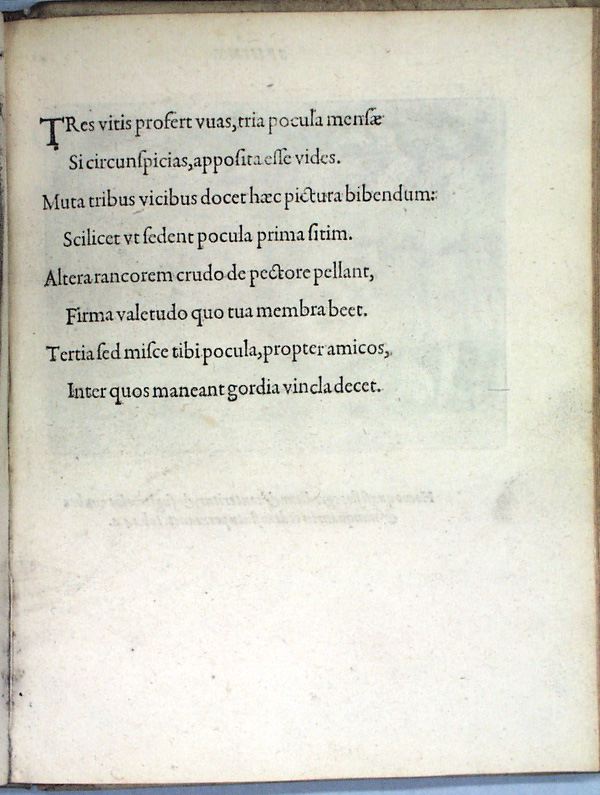 TRes vitis profert vuas, tria pocula mensæ
Si circunspicias, apposita esse vides.
Muta tribus vicibus docet hæc pictura bibendum:
Scilicet vt sedent pocula prima sitim.
Altera rancorem crudo de pectore pellant,
Firma valetudo quo tua membra beet.
Tertia sed misce tibi pocula, propter amicos,
Inter quos maneant gordia vincla decet.